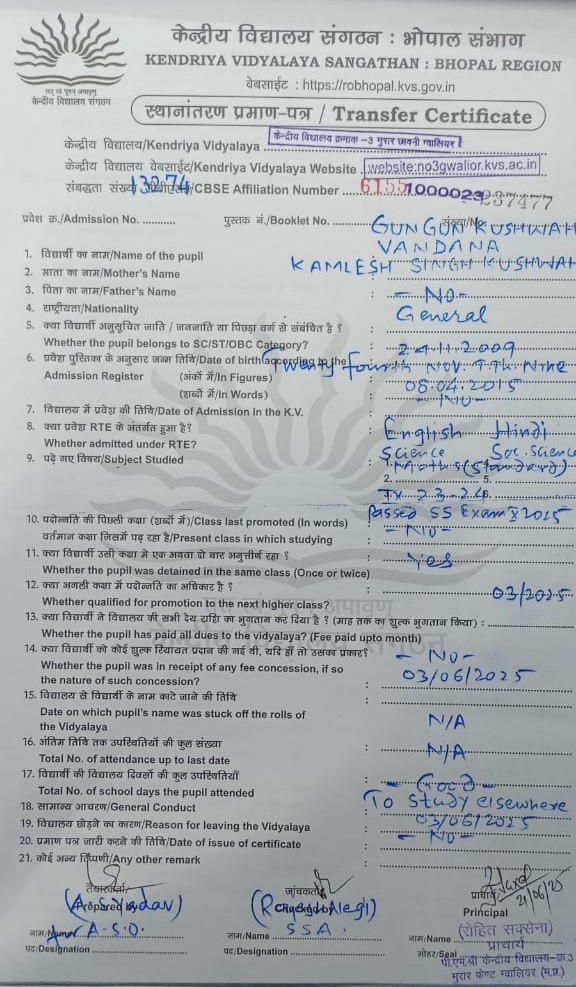 केन्द्रीय विद्यालय संगठन : भोपाल संभाग
KENDRIYA VIDYALAYA SANGATHAN : BHOPAL REGION
वेबसाईट : https://robhopal.kvs.gov.in
केन्द्रीय विद्यालय संगठन
स्थानांतरण प्रमाण-पत्र / Transfer Certificate
केन्द्रीय विद्यालय/Kendriya Vidyalaya केन्द्रीय विद्यालय क्रमांक -3 मुरार छावनी ग्वालियर
केन्द्रीय विद्यालय वेबसाईट/Kendriya Vidyalaya Website website:no3gwalior.kvs.ac.in
संबद्धता संख्या 13274 /CBSE Affiliation Number 1000023 237477
प्रवेश क्र./Admission No. पुस्तक नं./Booklet No. संख्या/No.
GUNGUN KUSHWAH
1. विद्यार्थी का नाम/Name of the pupil VANDANA
2. माता का नाम/Mother's Name KAMLESH SINGH KUSHWAH
3. पिता का नाम/Father's Name : - NO -
4. राष्ट्रीयता/Nationality : General
5. क्या विद्यार्थी अनुसूचित जाति / जनजाति या पिछड़ा वर्ग से संबंधित है ?
Whether the pupil belongs to SC/ST/OBC Category? : 24.11.2009
6. प्रवेश पुस्तिका के अनुसार जन्म तिथि/Date of birth(according to the Twenty Fourth Nov. Nine
Admission Register (अंकों में/In Figures) : 08.04.2015
(शब्दों में/In Words) - NO -
7. विद्यालय में प्रवेश की तिथि/Date of Admission in the K.V. :
8. क्या प्रवेश RTE के अंतर्गत हुआ है? English Hindi
Whether admitted under RTE? Science Soc. Science
9. पढ़े गए विषय/Subject Studied 1. Maths (Standard) 4.
2. 5.
IX 2.3.24 6.
10. पदोन्नति की पिछली कक्षा (शब्दों में)/Class last promoted (In words) Passed SS Exam X 2025
वर्तमान कक्षा जिसमें पढ़ रहा है/Present class in which studying - NO -
11. क्या विद्यार्थी उसी कक्षा में एक अथवा दो बार अनुत्तीर्ण रहा ?
Whether the pupil was detained in the same class (Once or twice) : Yes
12. क्या अगली कक्षा में पदोन्नति का अधिकार है ?
Whether qualified for promotion to the next higher class? 03/2025
13. क्या विद्यार्थी ने विद्यालय की सभी देय राशि का भुगतान कर दिया है ? (माह तक का शुल्क भुगतान किया) :
Whether the pupil has paid all dues to the vidyalaya? (Fee paid upto month)
14. क्या विद्यार्थी को कोई शुल्क रियायत प्रदान की गई थी, यदि हाँ तो उसका प्रकार? - NO -
Whether the pupil was in receipt of any fee concession, if so 03/06/2025
the nature of such concession? :
15. विद्यालय से विद्यार्थी के नाम काटे जाने की तिथि :
Date on which pupil's name was stuck off the rolls of
the Vidyalaya N/A
16. अंतिम तिथि तक उपस्थितियों की कुल संख्या :
Total No. of attendance up to last date N/A
17. विद्यार्थी की विद्यालय दिवसों की कुल उपस्थितियाँ :
Total No. of school days the pupil attended - Good -
18. सामान्य आचरण/General Conduct : To Study elsewhere
19. विद्यालय छोड़ने का कारण/Reason for leaving the Vidyalaya : 03/06/2025
20. प्रमाण पत्र जारी करने की तिथि/Date of issue of certificate : - NO -
21. कोई अन्य टिप्पणी/Any other remark :
तैयारकर्ता/ जांचकर्ता/ प्राचार्य/
Prepared by Checked by 21/06/25
Principal
नाम/Name A.S.O. नाम/Name SSA. नाम/Name (रोहित सक्सेना)
पद/Designation पद/Designation मोहर/Seal प्राचार्य
पी.एम.श्री केन्द्रीय विद्यालय-क्र.3
मुरार केण्ट ग्वालियर (म.प्र.)